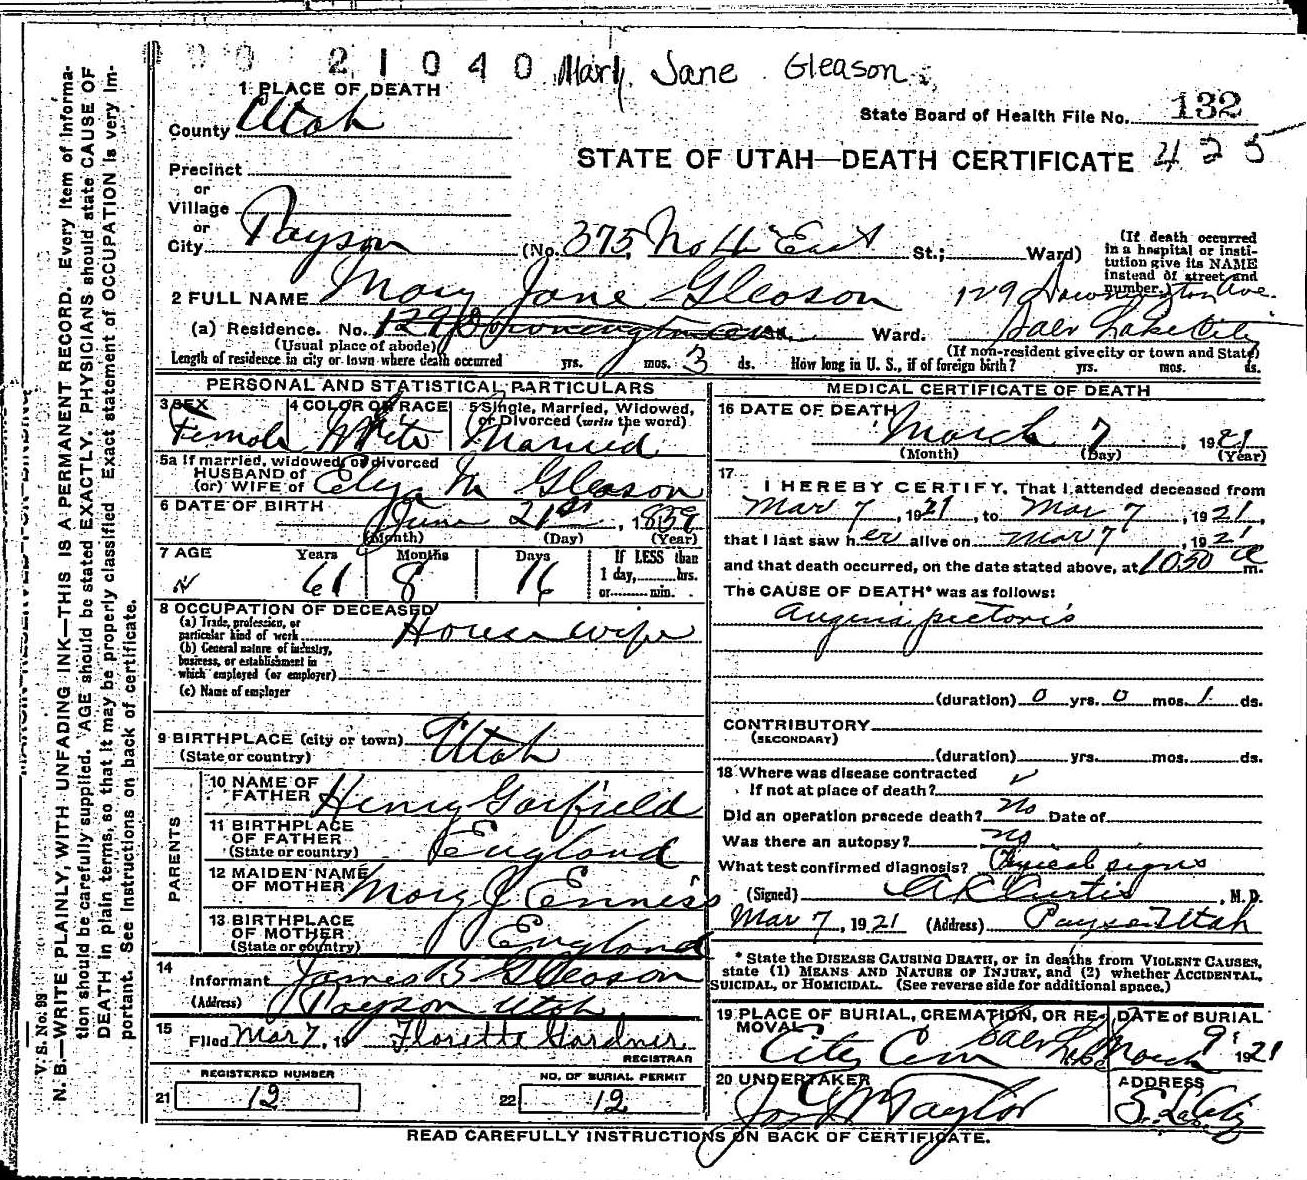 21040 Mary Jane Gleason
1 PLACE OF DEATH
County Utah
State Board of Health File No. 132
STATE OF UTAH—DEATH CERTIFICATE 425
Precinct
or
Village
or
City Payson (No. 375, No 4" East St.; Ward)
(If death occurred in a hospital or institution give its NAME instead of street and number.)
2 FULL NAME Mary Jane Gleason
129 Downington Ave.
(a) Residence. No. 129 Downington Ave. Ward. Salt Lake City
(Usual place of abode) (If non-resident give city or town and State)
Length of residence in city or town where death occurred yrs. mos. 3 ds. How long in U. S., if of foreign birth? yrs. mos. ds.
PERSONAL AND STATISTICAL PARTICULARS
3 SEX Female
4 COLOR OR RACE White
5 Single, Married, Widowed, or Divorced (write the word) Married
5a If married, widowed, or divorced
HUSBAND of
(or) WIFE of M Gleason
6 DATE OF BIRTH June 21st, 1859
(Month) (Day) (Year)
7 AGE Years 61 Months 8 Days 16 If LESS than 1 day, hrs. or min.
8 OCCUPATION OF DECEASED
(a) Trade, profession, or particular kind of work House wife
(b) General nature of industry, business, or establishment in which employed (or employer)
(c) Name of employer
9 BIRTHPLACE (city or town) Utah
(State or country)
PARENTS
10 NAME OF FATHER Henry Garfield
11 BIRTHPLACE OF FATHER England
(State or country)
12 MAIDEN NAME OF MOTHER Mary J Enniss
13 BIRTHPLACE OF MOTHER England
(State or country)
14
Informant James B Gleason
(Address) Payson Utah
15
Filed Mar 7, 19 Florette Gardner
REGISTRAR
REGISTERED NUMBER
21 12
NO. OF BURIAL PERMIT
22 12
MEDICAL CERTIFICATE OF DEATH
16 DATE OF DEATH March 7, 1921
(Month) (Day) (Year)
17
I HEREBY CERTIFY, That I attended deceased from
Mar 7, 1921, to Mar 7, 1921,
that I last saw her alive on Mar 7, 1921
and that death occurred, on the date stated above, at 1050 a m.
The CAUSE OF DEATH* was as follows:
Angina pectoris
(duration) 0 yrs. 0 mos. 1 ds.
CONTRIBUTORY
(SECONDARY)
(duration) yrs. mos. ds.
18 Where was disease contracted
If not at place of death?
Did an operation precede death? no Date of
Was there an autopsy? no
What test confirmed diagnosis? Physical signs
(Signed) A R Curtis, M. D.
Mar 7, 1921 (Address) Payson Utah
* State the DISEASE CAUSING DEATH, or in deaths from VIOLENT CAUSES,
state (1) MEANS AND NATURE OF INJURY, and (2) whether ACCIDENTAL,
SUICIDAL, or HOMICIDAL. (See reverse side for additional space.)
19 PLACE OF BURIAL, CREMATION, OR REMOVAL City Cem Salt Lake
DATE of BURIAL March 9 1921
20 UNDERTAKER Jos Wm Taylor
ADDRESS S. Lake City
READ CAREFULLY INSTRUCTIONS ON BACK OF CERTIFICATE.
V. S. No. 99
MARGIN RESERVED FOR BINDING
N. B.—WRITE PLAINLY, WITH UNFADING INK—THIS IS A PERMANENT RECORD. Every item of informa-
tion should be carefully supplied. AGE should be stated EXACTLY. PHYSICIANS should state CAUSE OF
DEATH in plain terms, so that it may be properly classified. Exact statement of OCCUPATION is very im-
portant. See Instructions on back of certificate.